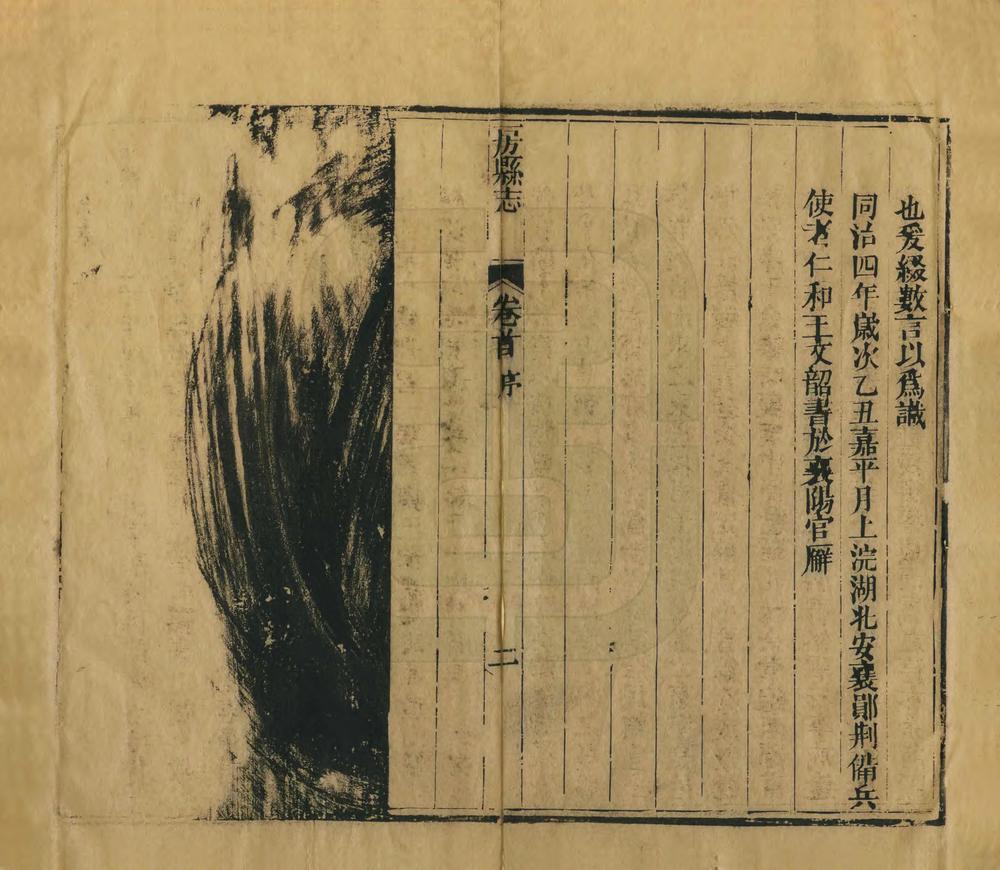 也爰綴數言以爲識
同治四年歲次乙丑嘉平月上浣湖北安襄鄖荆備兵
使者仁和王文韶書於襄陽官廨
房縣志
卷首 序
二